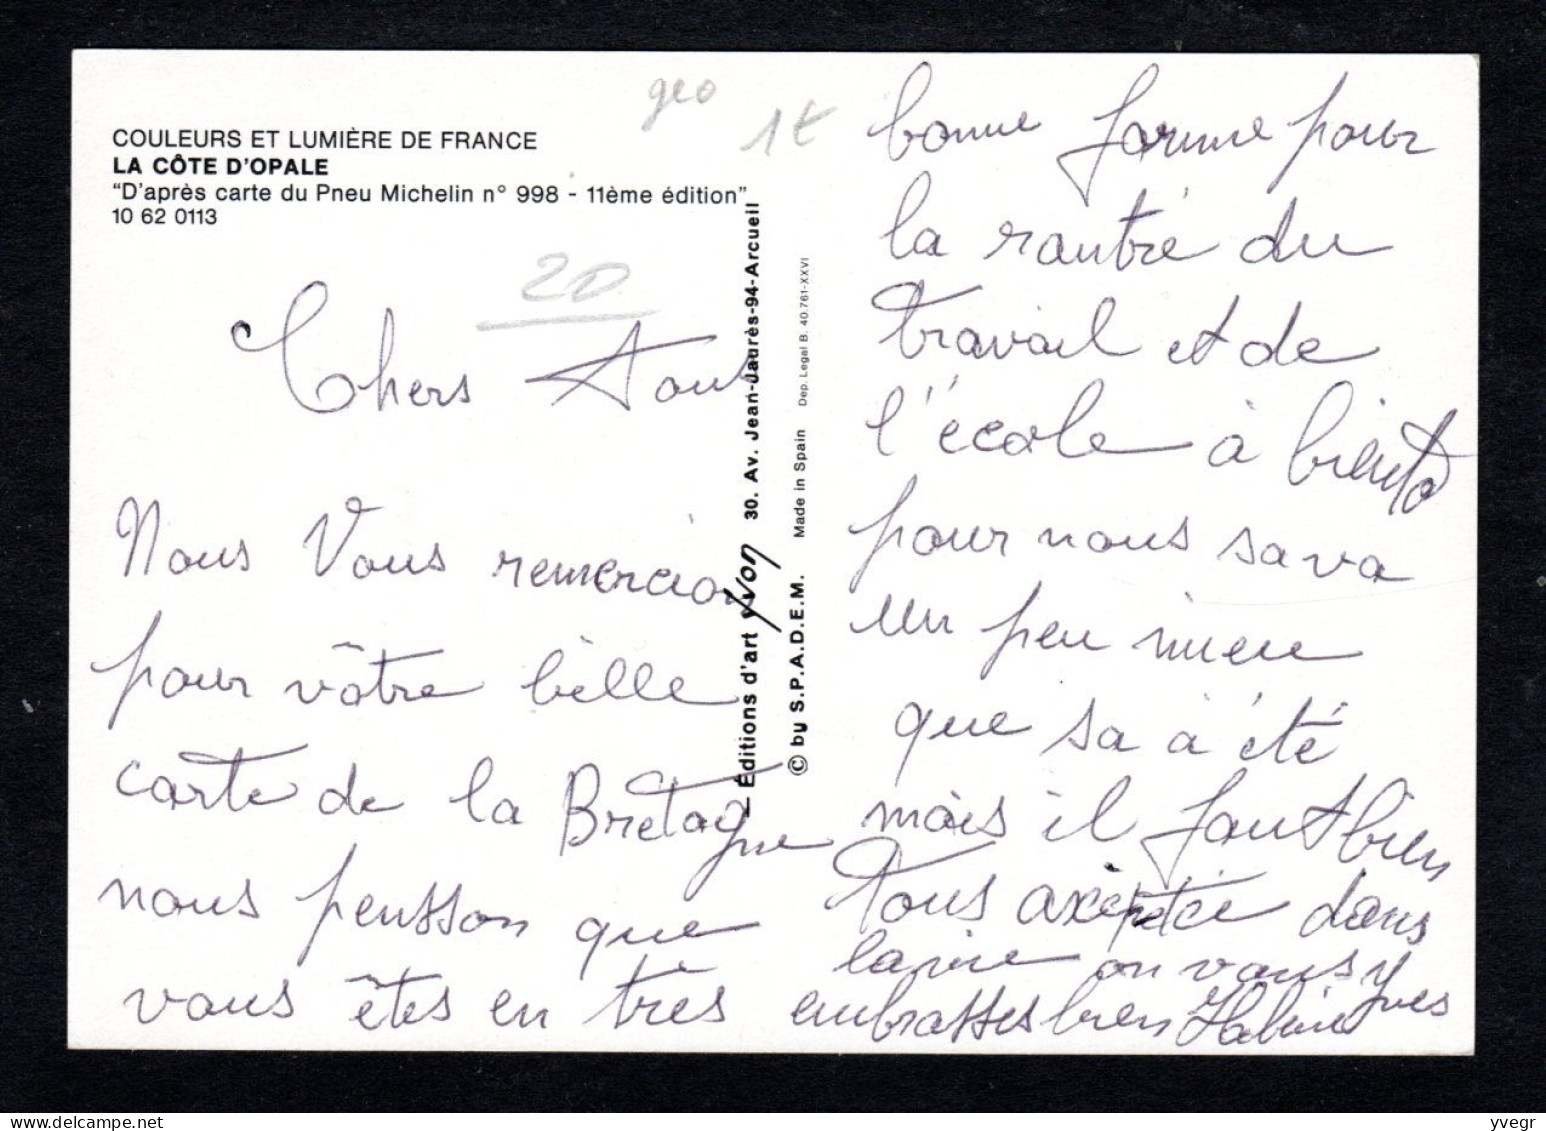 geo
1€
COULEURS ET LUMIÈRE DE FRANCE
LA CÔTE D'OPALE
"D'après carte du Pneu Michelin n° 998 - 11ème édition"
10 62 0113
20
Chers Tous
Nous Vous remercions
pour vôtre belle
carte de la Bretagne
nous pensson que
vous êtes en très
Éditions d'art yvon 30. Av. Jean-Jaurès-94-Arcueil
© by S.P.A.D.E.M. Made in Spain Dep. Legal B. 40.761-XXVI
bonne forme pour
la rantré du
travail et de
l'école à biento
pour nous sa va
un peu mieu
que sa à été
mais il faut bien
tous axepté dans
la vie on vous
embrasses bien
Yves